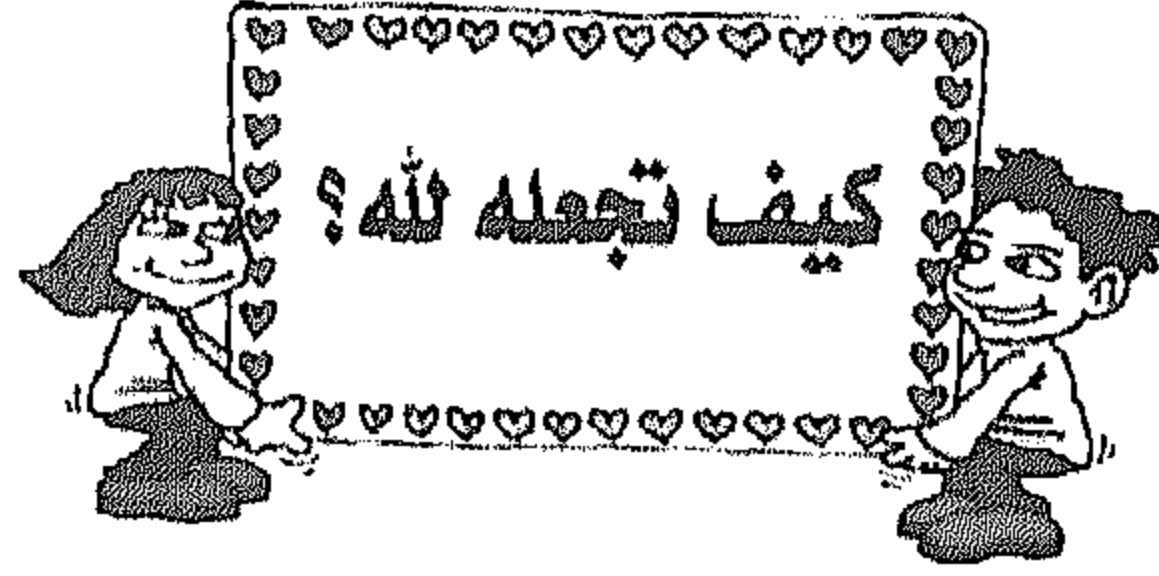 كيف تجعله لله؟